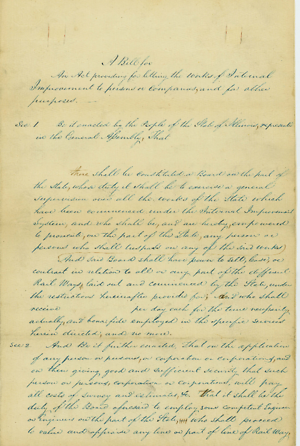 A Bill for
An Act providing for letting the works of Internal
Improvement to persons or Companies, and for other
purposes. —
Sec 1 Be it enacted by the People of the State of Illinois, represented
in the General Assembly, That
There shall be constituted a Board on the part of
the State, whose duty it shall be to exercise a general
Supervision over all the works of the State which
have been commenced under the Internal Improvement
System, and who shall be, and are hereby empowered
to prevent, on the part of the State, any person or
persons who shall trespass on any of the said works.
And said Board shall have power to let, lease, or
contract in relation to all or any part of the different
Rail Ways, laid out and commenced by the State, under
the restrictions hereinafter provided for, and who shall
receive per day each for the time necessarily
actually and employed in the specific services
herein directed, and no more.
Sec 2 And Be it further enacted, That on the application
of any person or persons, or corporation or corporations, and
on their giving good and sufficient security that such
person or persons, corporation or corporations, will pay
all costs of survey and estimates, &c that it shall be the
duty of the Board aforesaid to employ some competent Engineer
or Engineers on the part of the State, who shall proceed
to value and appraise any line or part of line of Rail Ways